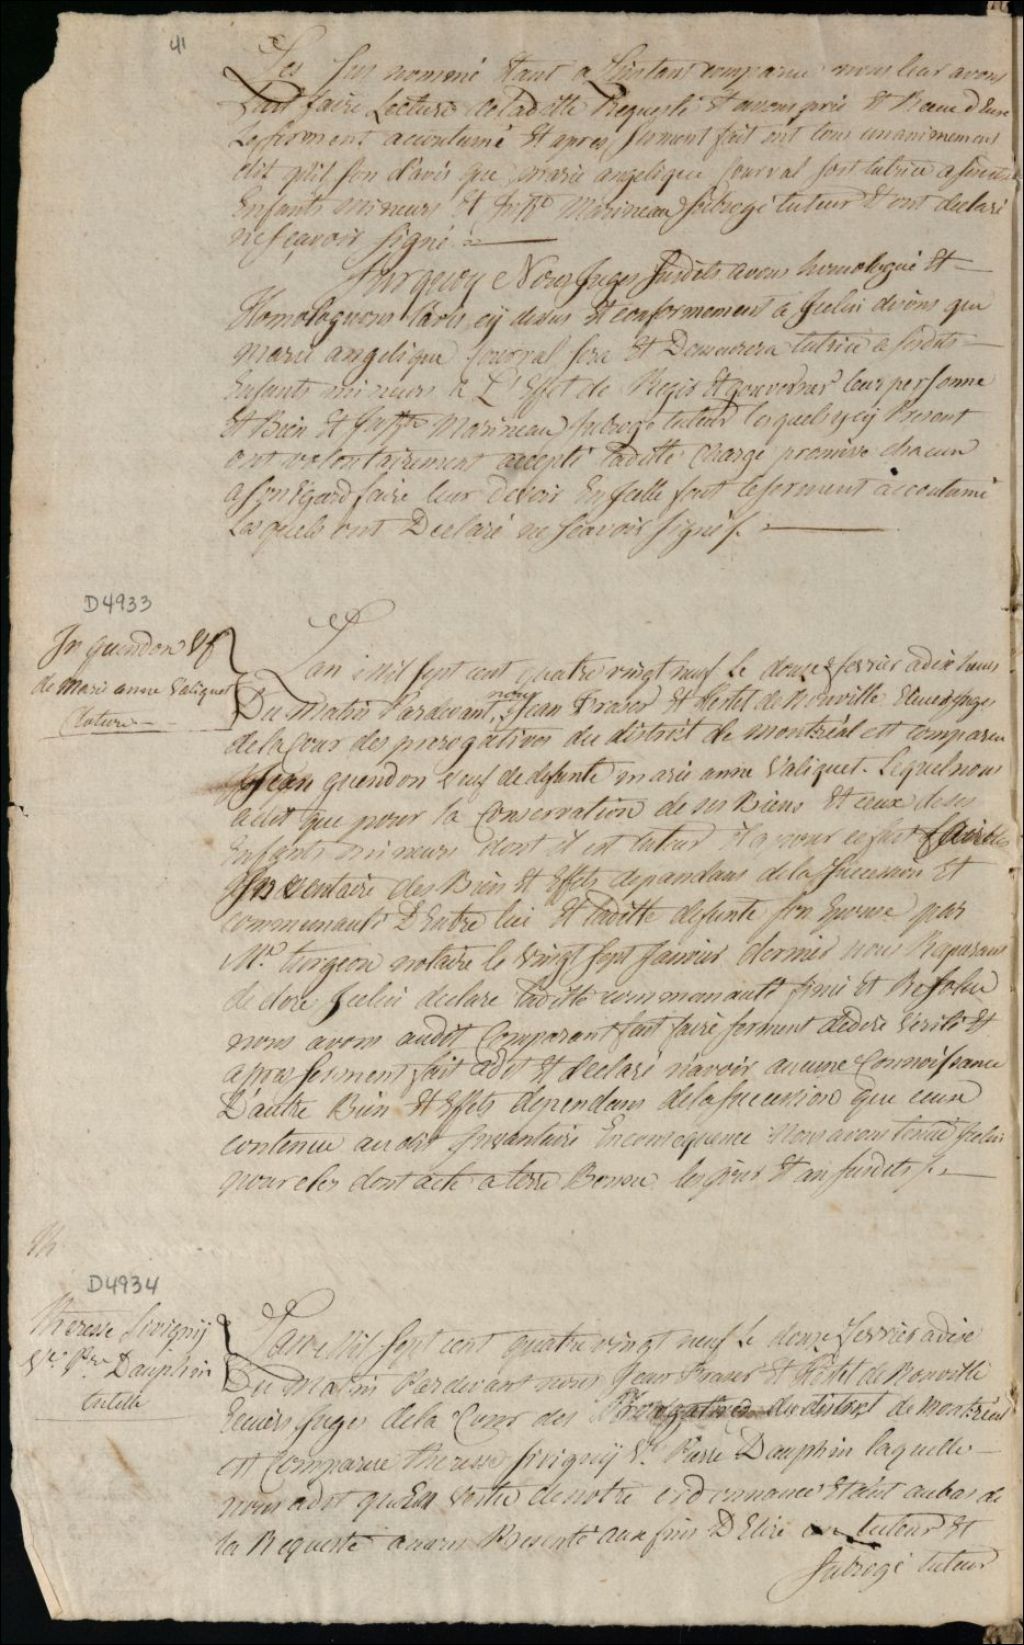 41
Les sus nommé Etant a L'instant comparue nous leur avons
fait faire Lecture de Laditte Requeste Et avons pris Et Receu d'Eux
Le serment accoutumé Et apres serment fait ont tous unanimement
dit qu'il son d'avis que marie angelique Courval soit tutrice a sesdits
Enfants mineurs Et Jos.ph Marineau subrogé tuteur Et ont declaré
ne sçavoir signé
Surquoy Nous Juges susdits avons homologué Et
Homologuons L'avis cÿ dessus Et conformement à Jcelui disons que
Marie angelique Courval sera Et Demeurera tutrice a sesdits
Enfants mineurs a L'Effet de Regir Et gouverner leur personne
Et Bien Et Marineau subrogé tuteur lesquels icy Present
ont volontairement accepté laditte Charge promisre chacun
a son Egard faire leur devoir En Jcelle font le serment accoutumé
Lesquels ont Declaré ne sçavoir signés.
D4933
Jn guendon Vf
de Marie anne Valiquet
Cloture
Lan Mil sept cent quatre vingt neuf Le douze fevrier a dix heures
Du Matin Pardevant nous Jean Fraser Et Hertel de Rouville Ecuiers Juges
de la Cour des prerogatives du district de montréal est comparu
Jean guendon veuf de defunte marie anne Valiquet. Lequel nous
a dit que pour la Conservation de ses Biens Et ceux de ses
Enfants mineurs dont il est tuteur il a pour cet fait faire
Inventaire des Bien Et Effets dependans de la succession Et
communauté D'Entre lui Et laditte defunte son Epouse par
M.e turgeon notaire le vingt sept Janvier dernier nous Requerant
de clore Jcelui declare laditte communauté finie Et Resolue
nous avons audit Comparant fait faire serment de dire Verité Et
apres serment fait a dit Et declaré n'avoir aucune Connoissance
D'autre Bien Et Effets dependans de la succession que ceux
contenue audit Inventaire En consequence Nous avons tenu Jcelui
pour clos dont acte a terre Bonne les jour Et an susdits
Th
D4934
Therese Sivigny
V.e P.re Dauphin
tutelle
Lan Mil sept cent quatre vingt neuf Le douze fevrier a dix
Du Matin Pardevant nous Jean Fraser Et Hertel de Rouville
Ecuiers Juges de la Cour des Prerogatives du district de Montréal
est Comparue therese sivigny V.e Pierre Dauphin laquelle
nous a dit qu'En Vertu de notre ordonnance Etant au bas de
la Requeste a nous Presenté aux fins D'Elire un tuteur Et
subrogé tuteur